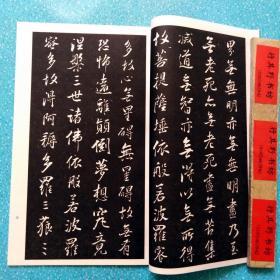 界無無明亦無無明盡乃至
無老死亦無老死盡無苦集
滅道無智亦無得以無所得
故菩提薩埵依般若波羅蜜
多故心無罣礙無罣礙故無有
恐怖遠離顛倒夢想究竟
涅槃三世諸佛依般若波羅
蜜多故得阿耨多羅三藐三